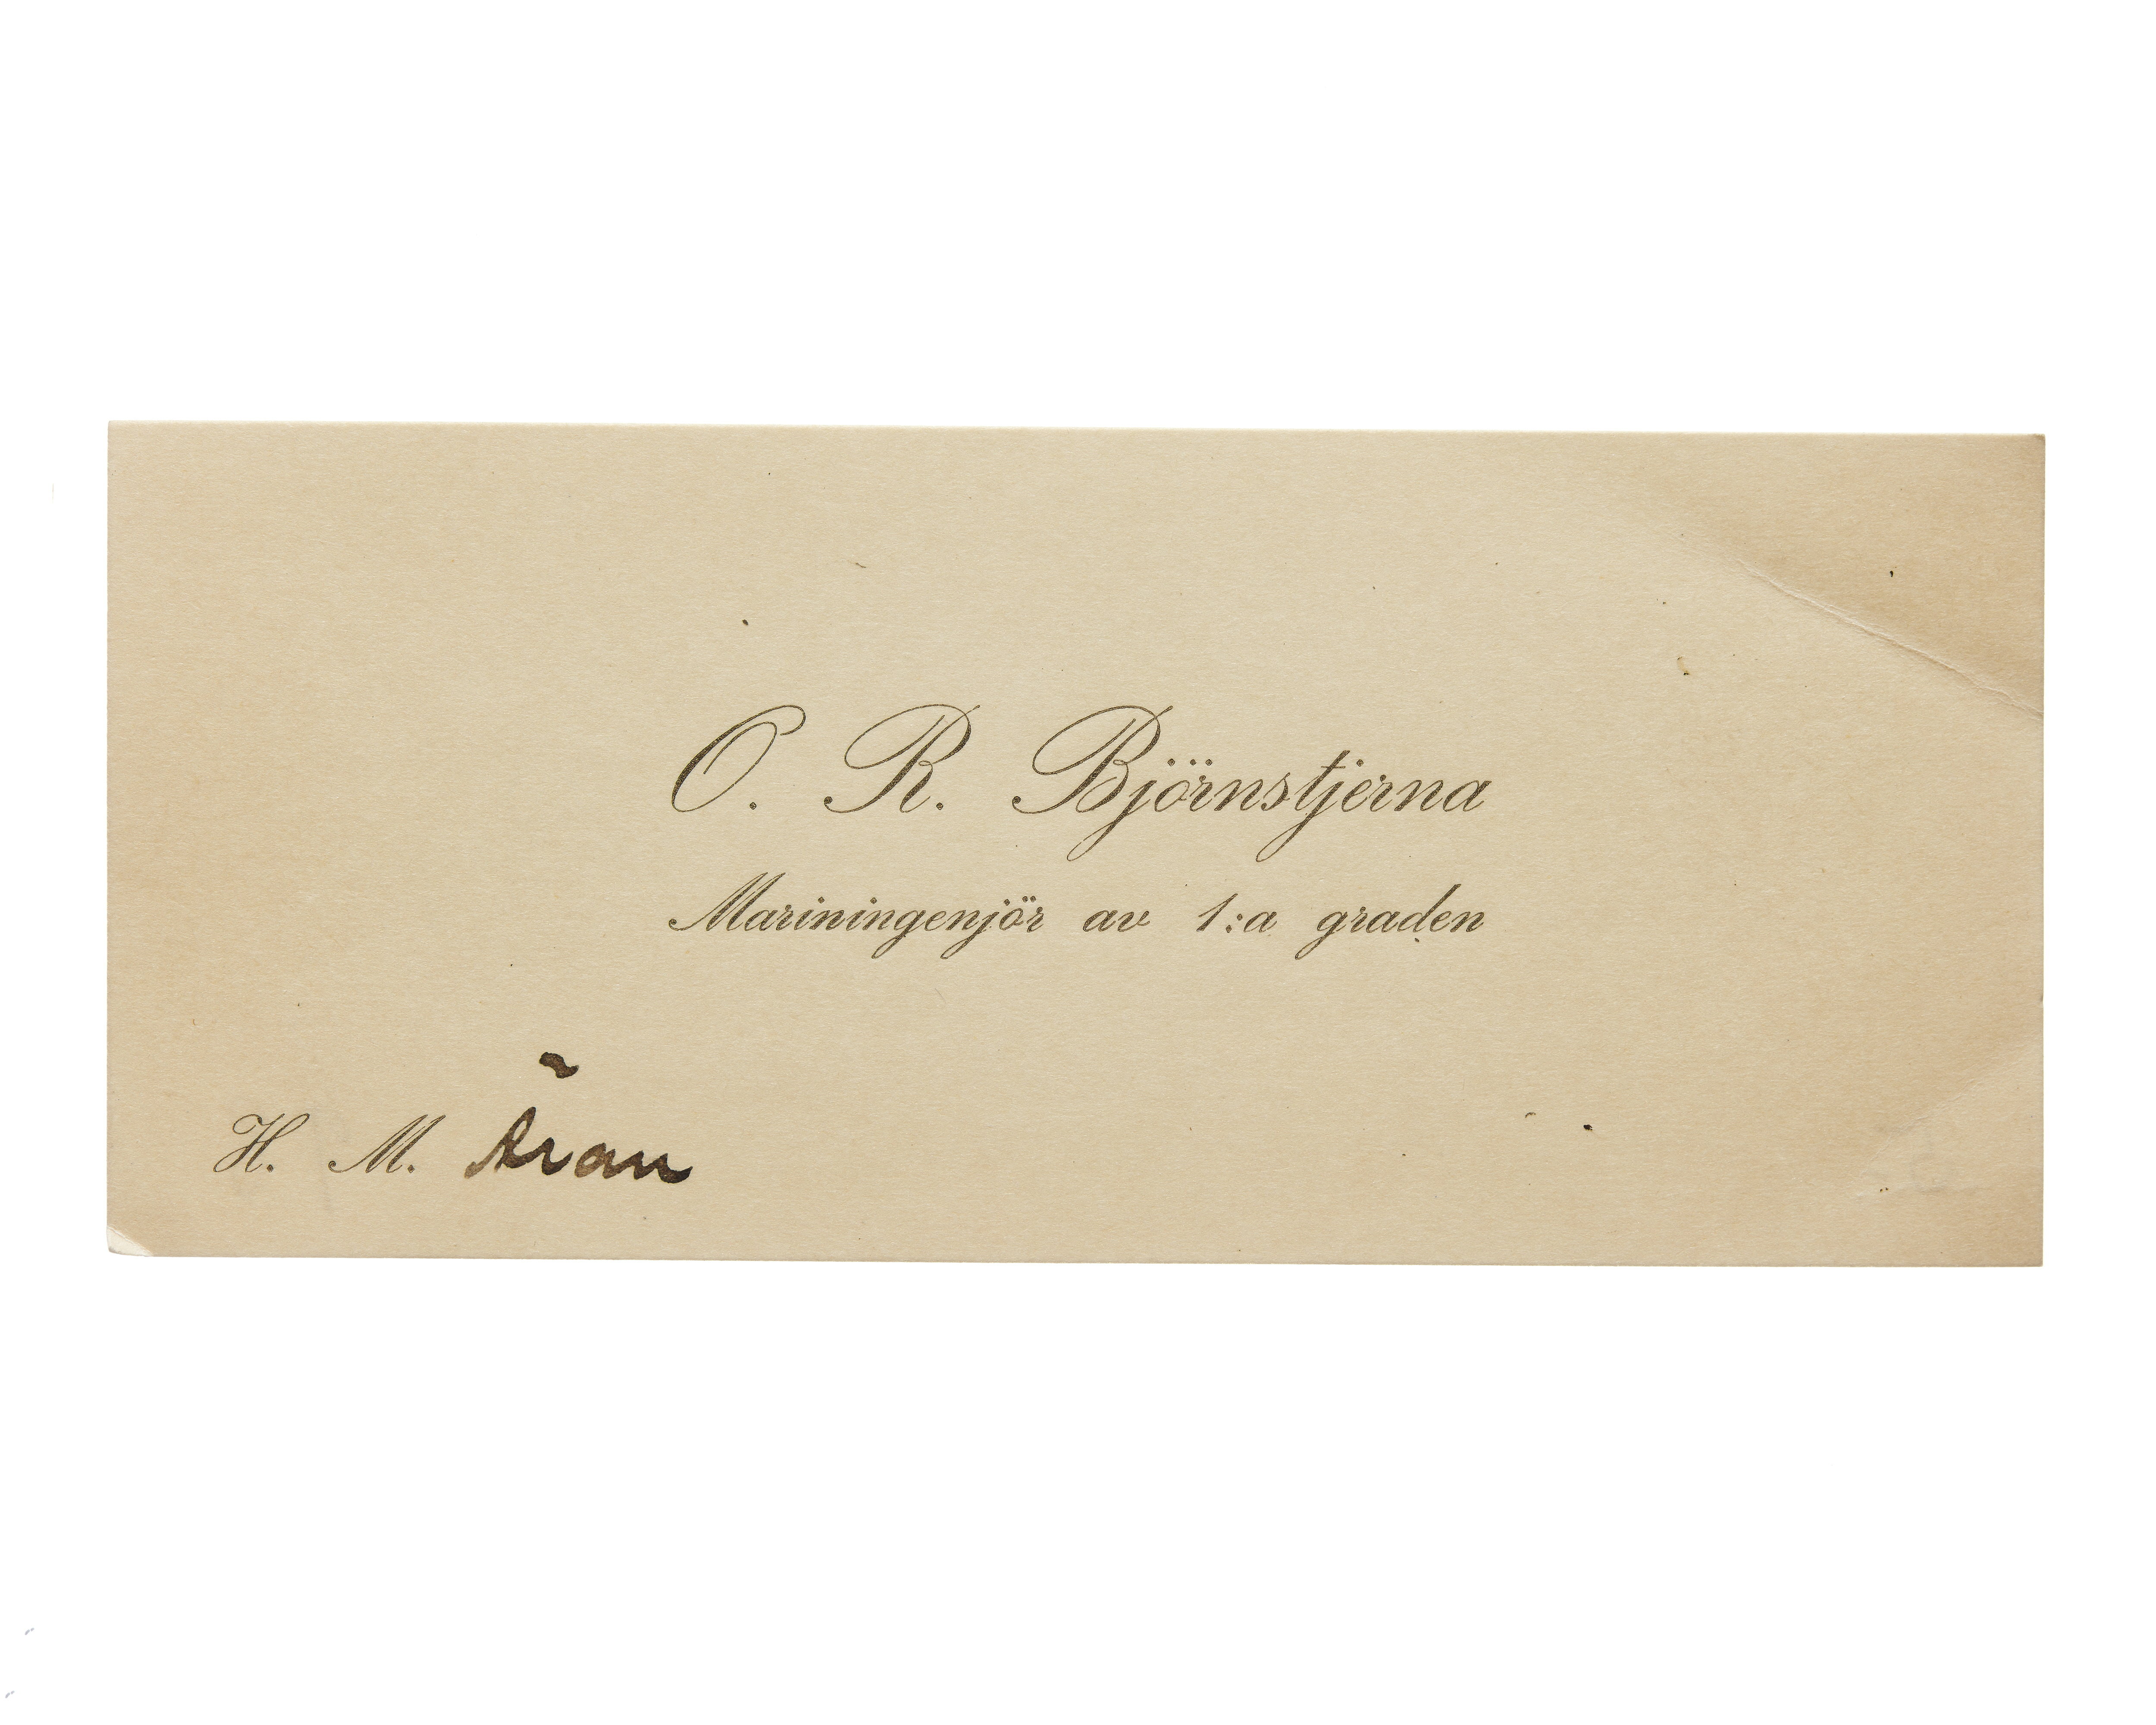 O. R. Björnstjerna
Mariningenjör av 1:a graden
H. M. Äran